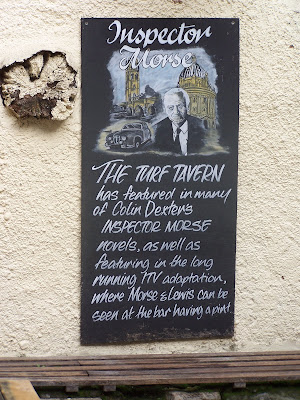 Inspector
Morse
THE TURF TAVERN
has featured in many
of Colin Dexter's
INSPECTOR MORSE
novels, as well as
featuring in the long
running ITV adaptation,
where Morse & Lewis can be
seen at the bar having a pint.